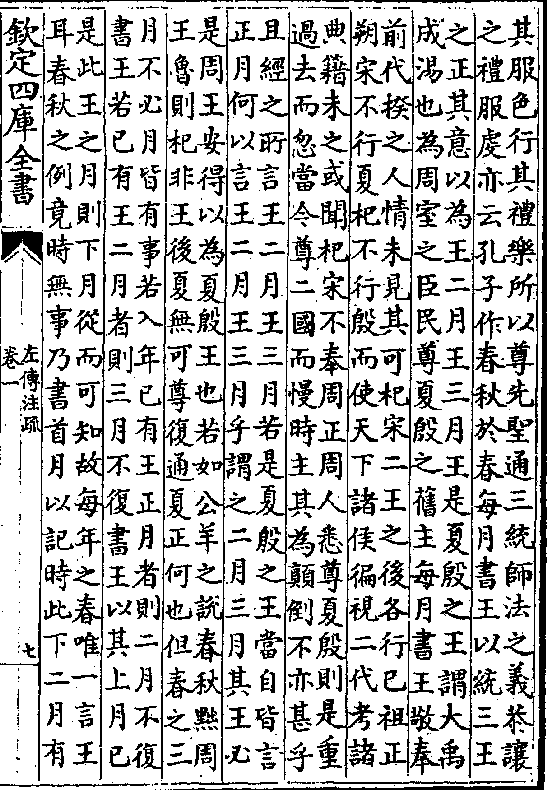 其服色行其禮樂所以尊先聖通三統師法之義恭讓
之禮服虔亦云孔子作春秋於春每月書王以統三王
之正其意以為王二月王三月王是夏殷之王謂大禹
成湯也為周室之臣民尊夏殷之舊主每月書王敬奉
前代揆之人情未見其可杞宋二王之後各行已祖正
朔宋不行夏杞不行殷而使天下諸侯徧視二代考諸
典籍未之或聞杞宋不奉周正周人悉尊夏殷則是重
過去而忽當今尊二國而慢時主其為顛倒不亦甚乎
且經之所言王二月王三月若是夏殷之王當自皆言
正月何以言王二月王三月乎謂之二月三月其王必
是周王安得以為夏殷王也若如公羊之說春秋黜周
王魯則杞非王後夏無可尊復通夏正何也但春之三
月不必月皆有事若入年已有王正月者則二月不復
書王若已有王二月者則三月不復書王以其上月已
是此王之月則下月從而可知故每年之春唯一言王
耳春秋之例竟時無事乃書首月以記時此下二月有
欽定四庫全書
左傳注疏
卷一
七